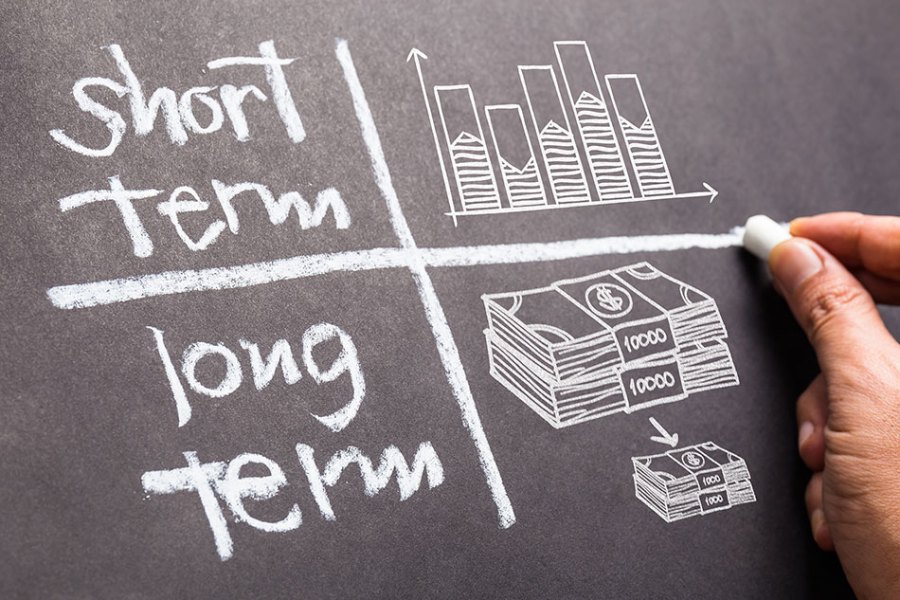 short
term
long
term
$
10000
10000
$
1000
1000